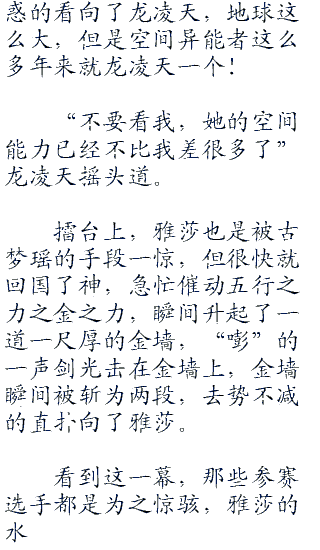 惑的看向了龙凌天，地球这
么大，但是空间异能者这么
多年来就龙凌天一个！
“不要看我，她的空间
能力已经不比我差很多了”
龙凌天摇头道。
擂台上，雅莎也是被古
梦瑶的手段一惊，但很快就
回国了神，急忙催动五行之
力之金之力，瞬间升起了一
道一尺厚的金墙，“嘭”的
一声剑光击在金墙上，金墙
瞬间被斩为两段，去势不减
的直扑向了雅莎。
看到这一幕，那些参赛
选手都是为之惊骇，雅莎的
水